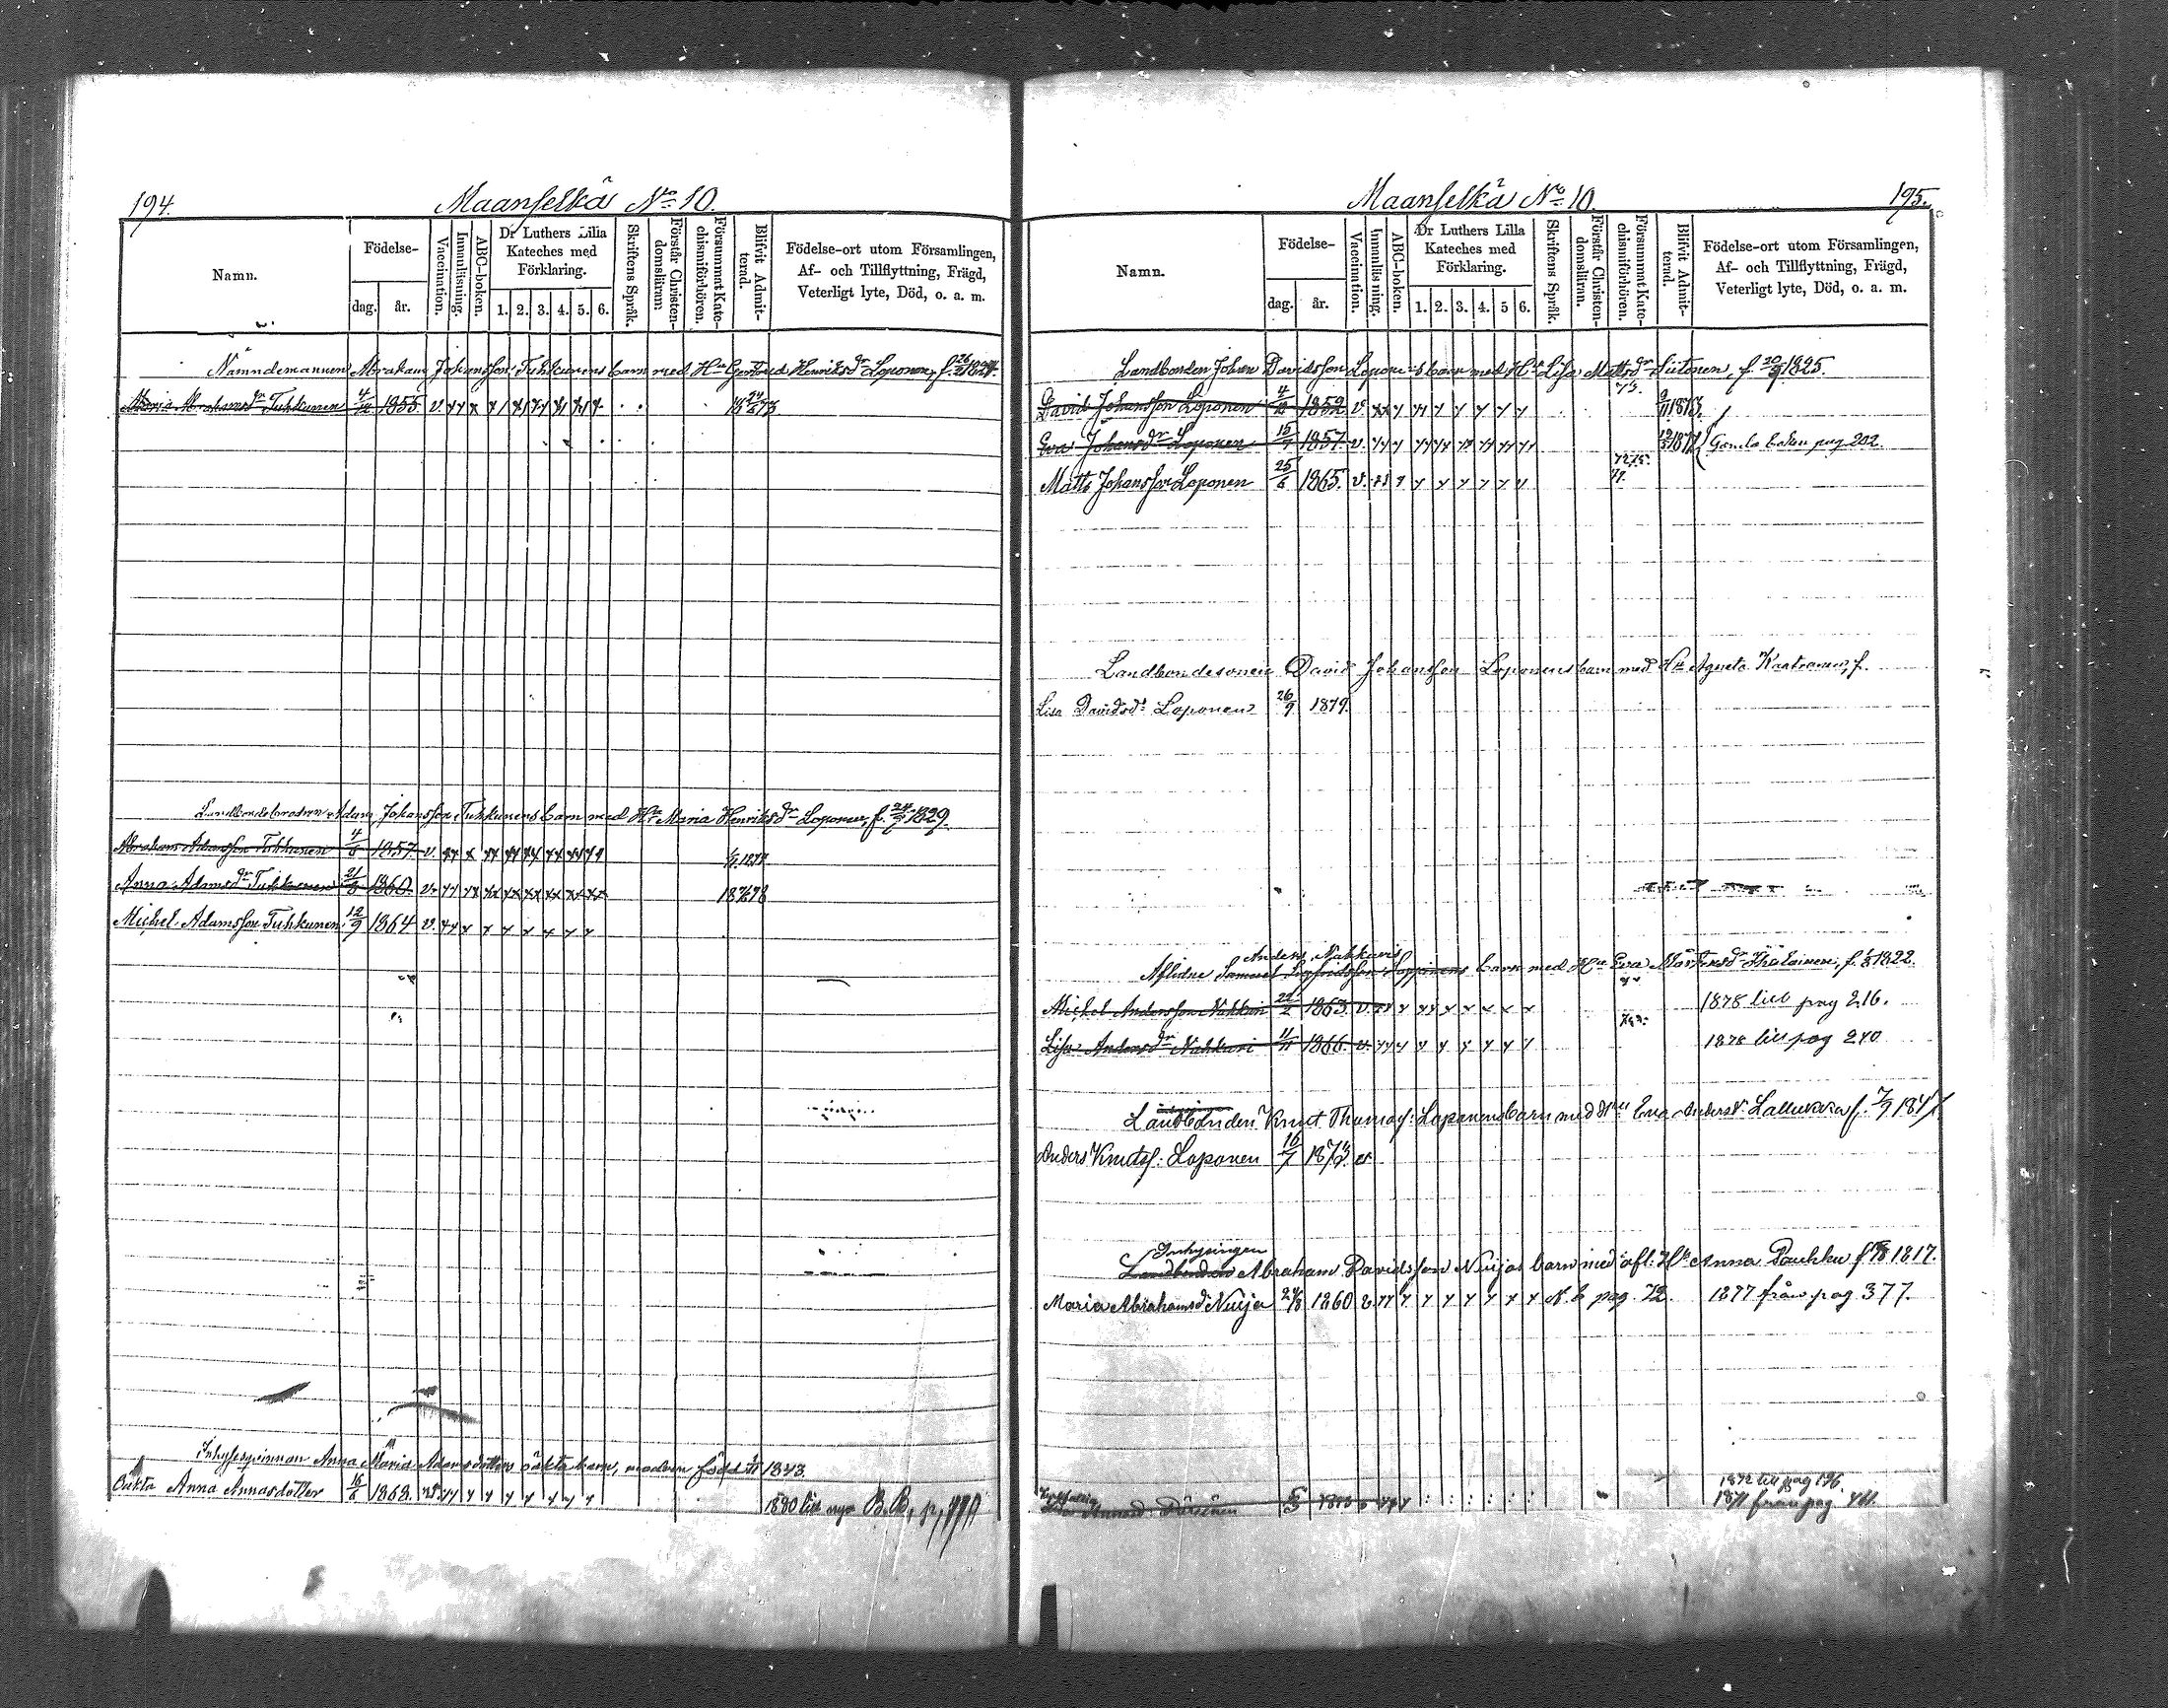 194.
Maanselkä No 10.
Namn.
Födelse-
dag. år.
Vaccination.
Innanläsning.
ABC-boken.
Dr Luthers Lilla
Kateches med
Förklaring.
1. 2. 3. 4. 5. 6.
Skriftens Språk.
Förstår Christen-
domsläran.
Försummat Kate-
chismiförhören.
Blifvit Admit-
terad.
Födelse-ort utom Församlingen,
Af- och Tillflyttning, Frägd,
Veterligt lyte, Död, o. a. m.
Nämndemannen Abraham Johansson Tuhkunens barn med Hu Gertrud Henriksdr Loponen, f.
Maria Abrahamsdr Tuhkunen 1855 v.
Landbondebrodren Adam Johansson Tuhkunens barn med Hu Maria Henriksdr Loponen, f. 24/7 1829.
Abraham Adamsson Tuhkunen 4/5 1857 v.
Anna Adamsdr Tuhkunen 1860. v.
Michel Adamsson Tuhkunen 12/9 1864 v.
Inhysesqvinnan Anna Maria Adamsdotters oäkta barn, modren född 1843.
Oäkta Anna Annasdotter 16/6 1868.
1880 till nya B.B., p.
Maanselkä No 10.
195.
Namn.
Födelse-
dag. år.
Vaccination.
Innanläsning.
ABC-boken.
Dr Luthers Lilla
Kateches med
Förklaring.
1. 2. 3. 4. 5 6.
Skriftens Språk.
Förstår Christen-
domsläran.
Försummat Kate-
chismiförhören.
Blifvit Admit-
terad.
Födelse-ort utom Församlingen,
Af- och Tillflyttning, Frägd,
Veterligt lyte, Död, o. a. m.
Landbonden Johan Davidsson Loponens barn med Hu Lisa Mattsdr Siitonen, f. 20/9 1825.
David Johansson Loponen 1852 v.
Eva Johansdr Loponen 15/7 1857 v. Gamla boken pag 202.
Matts Johansson Loponen 25/6 1865. v.
Landbondesonen David Johansson Loponens barn med Hu Agneta f.
Lisa Davidsdr Loponen 26/9 1879.
Anders Nahkuris
Aflidne Samuel Sigfridsson Loponens barn med Hu Eva 1822.
Michel Andersson Nahkuri 22/2 1863 v. 1878 till pag 216.
Lisa Andersdr Nahkuri 11/11 1866. v. 1878 till pag 240
Landbonden Knut Thomass: Loponens barn med Hu Eva Andersdr Lallukka f. 7/9
Anders Knutss: Loponen 16/7 v
Inhysingen
Landbonden Abraham Davidsson Nuijas barn med afl: Hu Anna Paukku f. 1817.
Maria Abrahamsdr Nuija 1860 N. b pag. 72. 1877 från pag 377.
1872 till pag 196.
1871 från pag